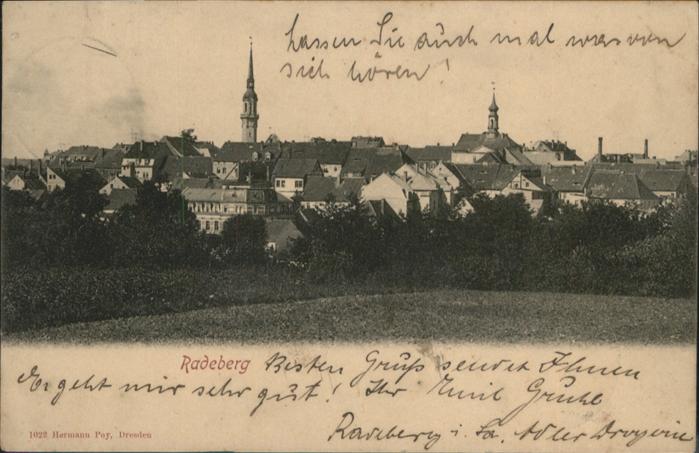 Lassen Sie auch mal was von
sich hören!
Radeberg
Besten Gruß sendet Ihnen
Es geht mir sehr gut! Ihr Emil
Radeberg i. Sa. Adler Drogerie
1022 Hermann Poy, Dresden